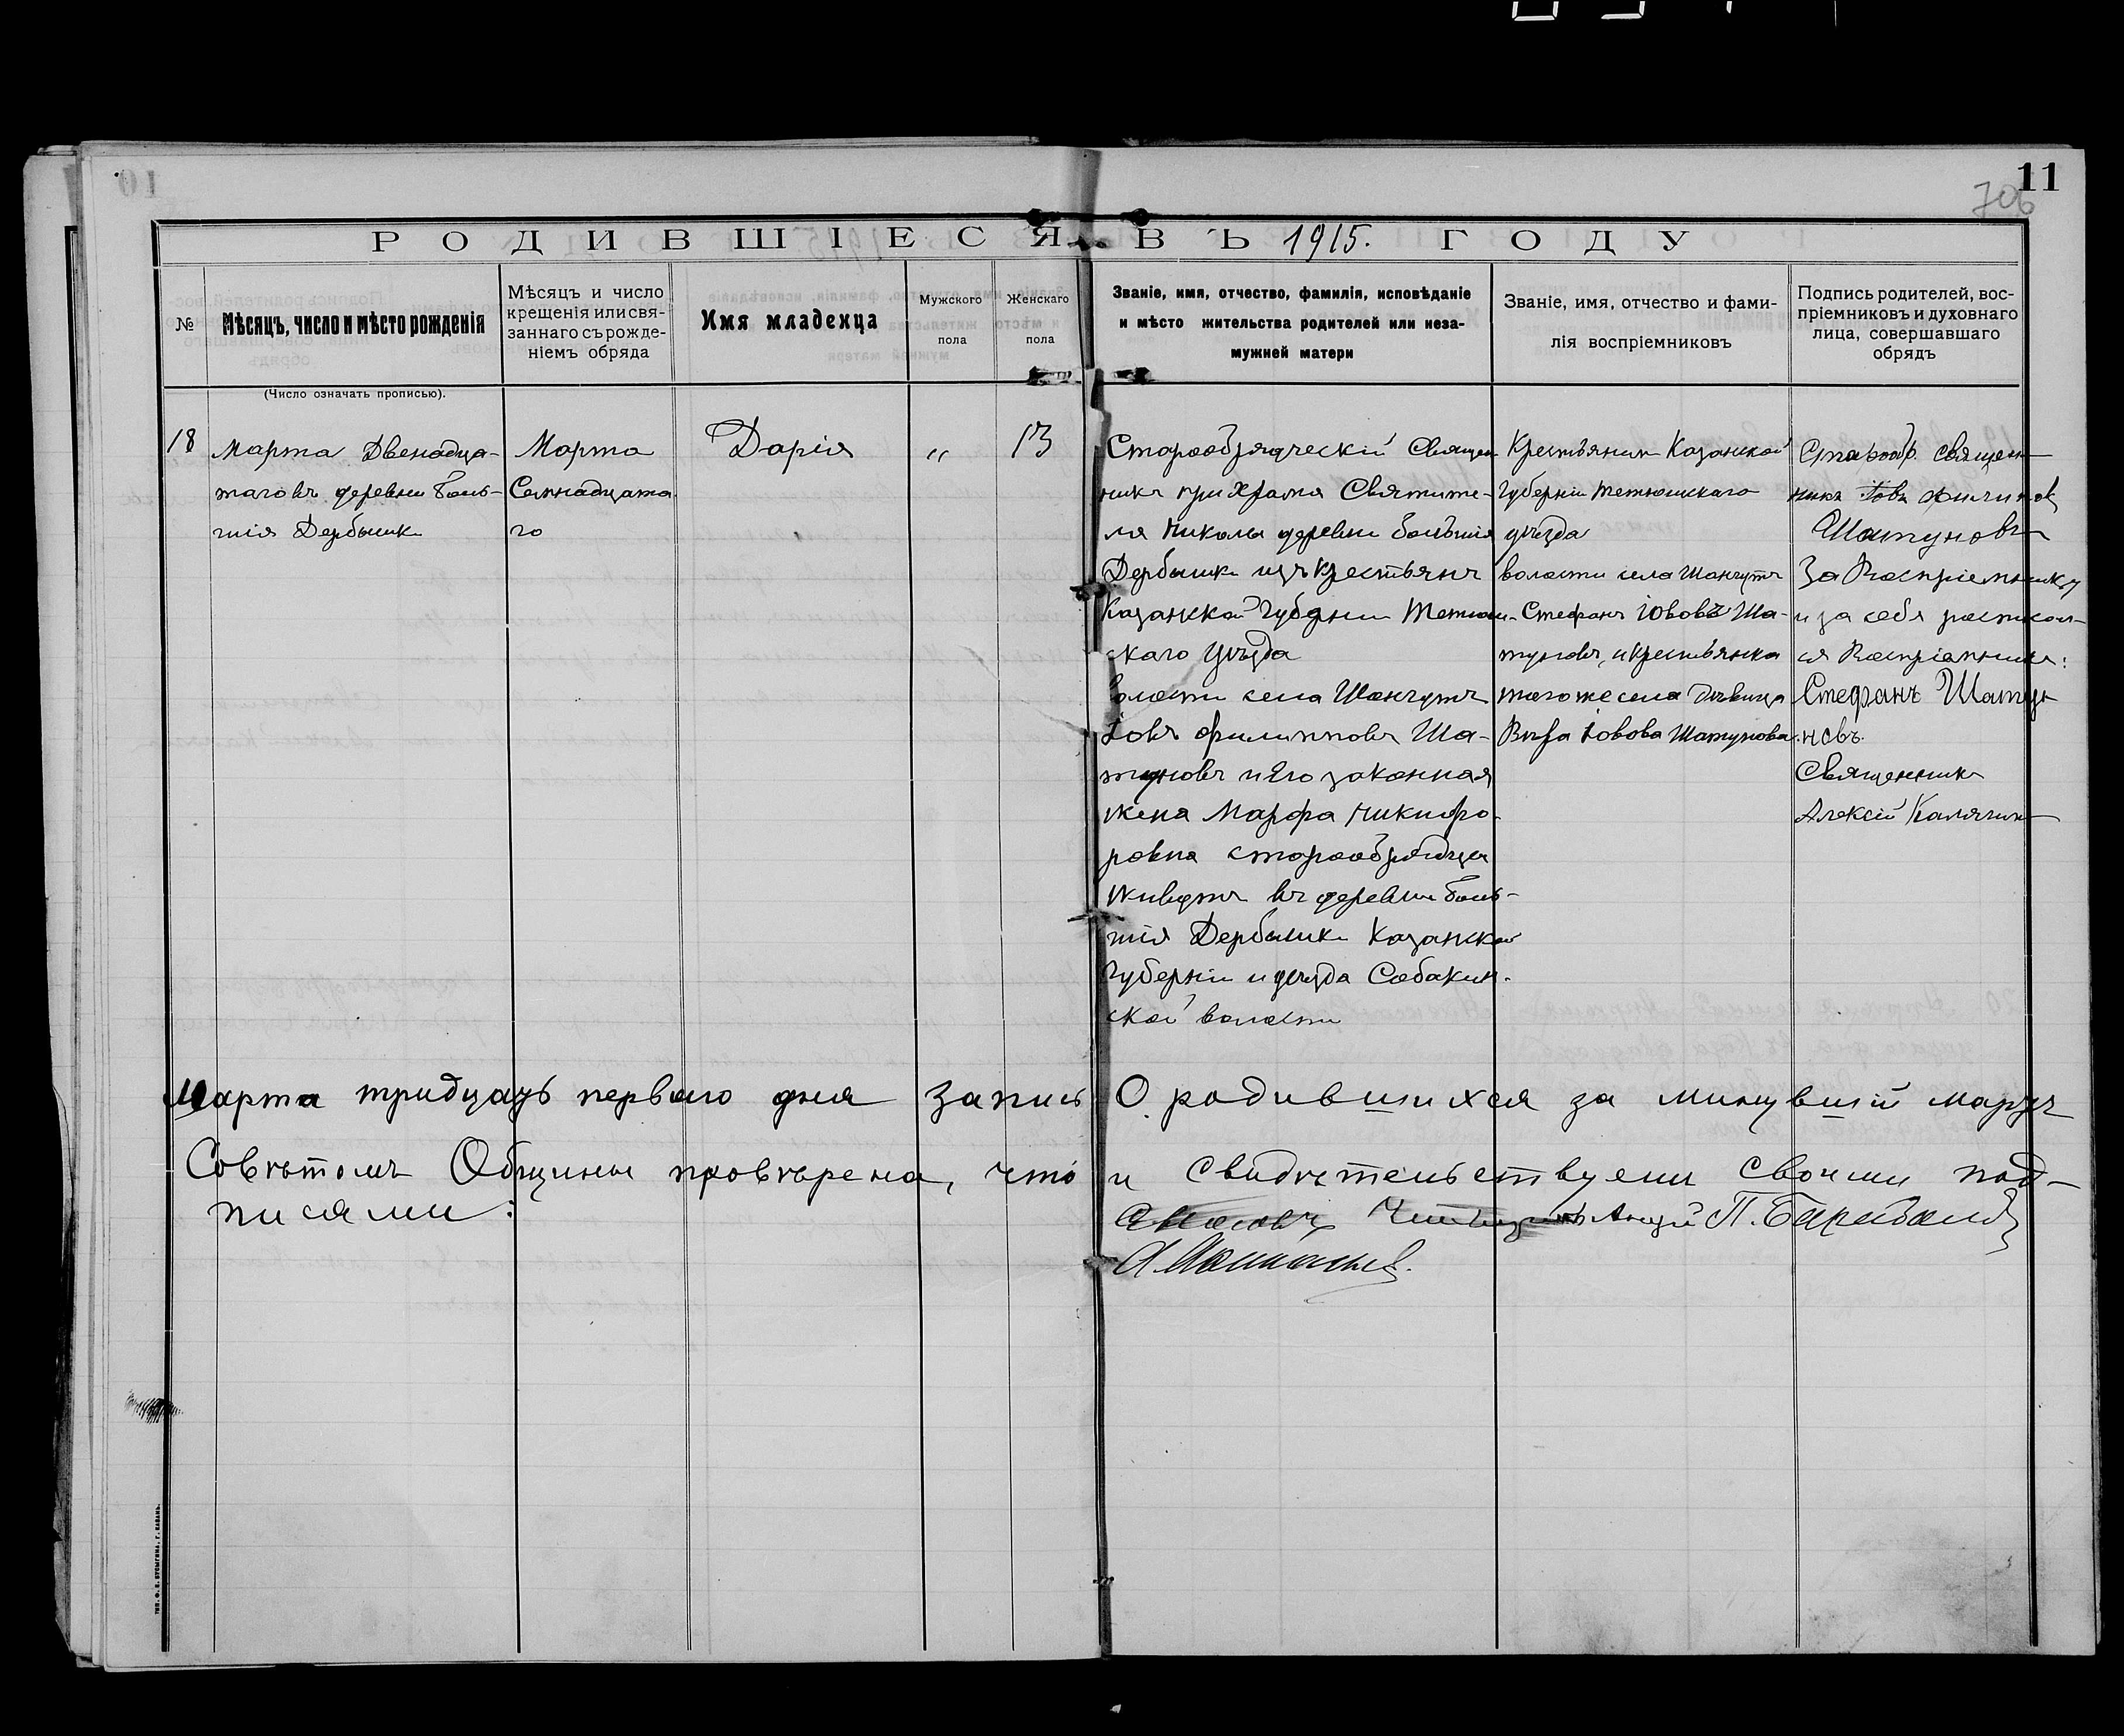 11
706
РОДИВШІЕСЯ ВЪ 1915. ГОДУ
№
Мѣсяцъ, число и мѣсто рожденія
(Число означать прописью).
Мѣсяцъ и число
крещенія или свя-
заннаго съ рожде-
ніемъ обряда
Имя младенца
Мужского
пола
Женскаго
пола
Званіе, имя, отчество, фамилія, исповѣданіе
и мѣсто жительства родителей или неза-
мужней матери
Званіе, имя, отчество и фами-
лія воспріемниковъ
Подпись родителей, вос-
пріемниковъ и духовнаго
лица, совершавшаго
обрядъ
18
Марта Двенадца-
таго въ деревни Боль-
шія Дербышк
Марта
Семнадцата
го
Дарія
„
13
Старообрядческій Священ
никъ при Храмѣ Святите-
ля Николы деревни большія
Дербышки изъ крестьянъ
Казанской Губерни Тетюш-
скаго Уѣзда
Волости села Шонгутъ
Іовъ Филипповъ Ша-
туновъ и Его законная
жена Марфа Никифо-
ровна старообрядцы
живутъ въ деревни Боль-
шія Дербышки Казанской
Губерніи и уѣзда Собакин-
ской волости
Крестьянин Казанской
Губерніи Тетюшскаго
уѣзда
волости села Шонгутъ
Стефанъ Іововъ Ша-
туновъ, и крестьянка
того же села Дѣвица
Вѣра Іовова Шатунова
Старообр. священ
никъ Іовъ Филипов
Шатуновъ
За Воспріемницу
и за себя росписал-
ся Воспріемникъ:
Стефанъ Шату
новъ.
Священникъ
Алексій Калягин
Марта тридцать перваго дня запись О родившихся за минувшій мартъ
Совѣтомъ Общины провѣрена, что и свидѣтельствуемъ своими под-
писями: